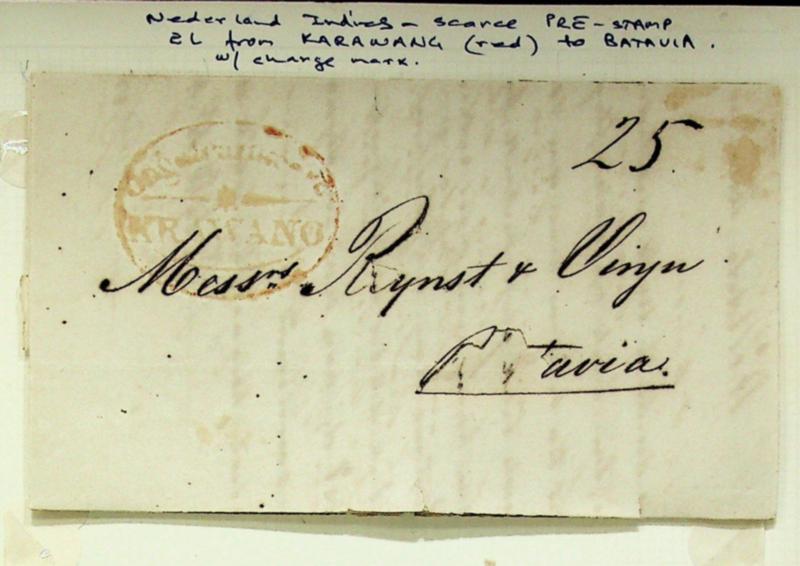 Nederland Indies - scarce PRE-STAMP
EL from KARAWANG (red) to BATAVIA.
w/ charge mark.
25
Ongefrankeerd
KRAWANG
Messrs Rynst & Vinju
Batavia.